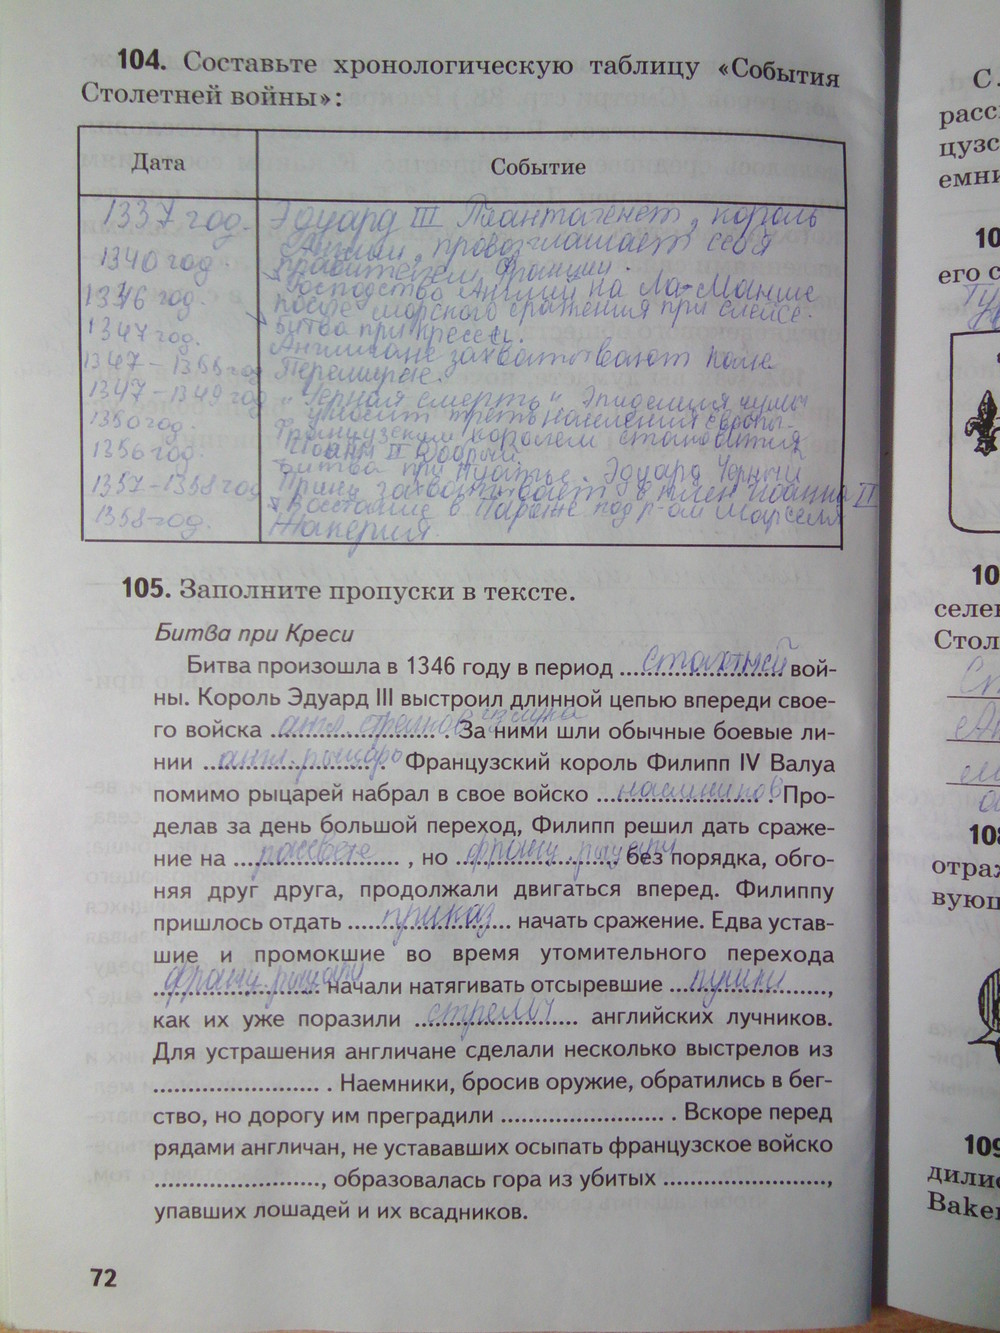 104. Составьте хронологическую таблицу «События
Столетней войны»:
Дата
Событие
1337 год.
Эдуард III Плантагенет, король
Англии, провозглашает себя
правителем Франции.
1340 год
Господство Англии на Ла-Манше
после морского сражения при Слейсе.
1346 год.
Битва при Кресси.
1347 год.
Англичане захватывают Кале
1347 – 1355 год
Перемирие.
1347 – 1349 год
"Черная смерть" Эпидемия чумы
уносит треть населения Европы.
1350 год.
Французским королем становится
Иоанн II Добрый.
1356 год.
Битва при Пуатье. Эдуард Черный
Принц захватывает в плен Иоанна II
1357-1358 год
Восстание в Париже под р-ом Марселя
1358 год.
Жакерия.
105. Заполните пропуски в тексте.
Битва при Креси
Битва произошла в 1346 году в период Столетней вой-
ны. Король Эдуард III выстроил длинной цепью впереди свое-
го войска англ. стрелков из лука. За ними шли обычные боевые ли-
нии англ. рыцарь. Французский король Филипп IV Валуа
помимо рыцарей набрал в свое войско наемников. Про-
делав за день большой переход, Филипп решил дать сраже-
ние на рассвете, но франц. рыцари, без порядка, обго-
няя друг друга, продолжали двигаться вперед. Филиппу
пришлось отдать приказ начать сражение. Едва устав-
шие и промокшие во время утомительного перехода
франц. рыцари начали натягивать отсыревшие пушки,
как их уже поразили стрелы английских лучников.
Для устрашения англичане сделали несколько выстрелов из
.......................... . Наемники, бросив оружие, обратились в бег-
ство, но дорогу им преградили .......................... . Вскоре перед
рядами англичан, не устававших осыпать французское войско
.........................., образовалась гора из убитых ..........................,
упавших лошадей и их всадников.
72
С.
расс
цузс
емни
10
его с
10
селен
Стол
108
отраж
вующ
109
дилис
Baker